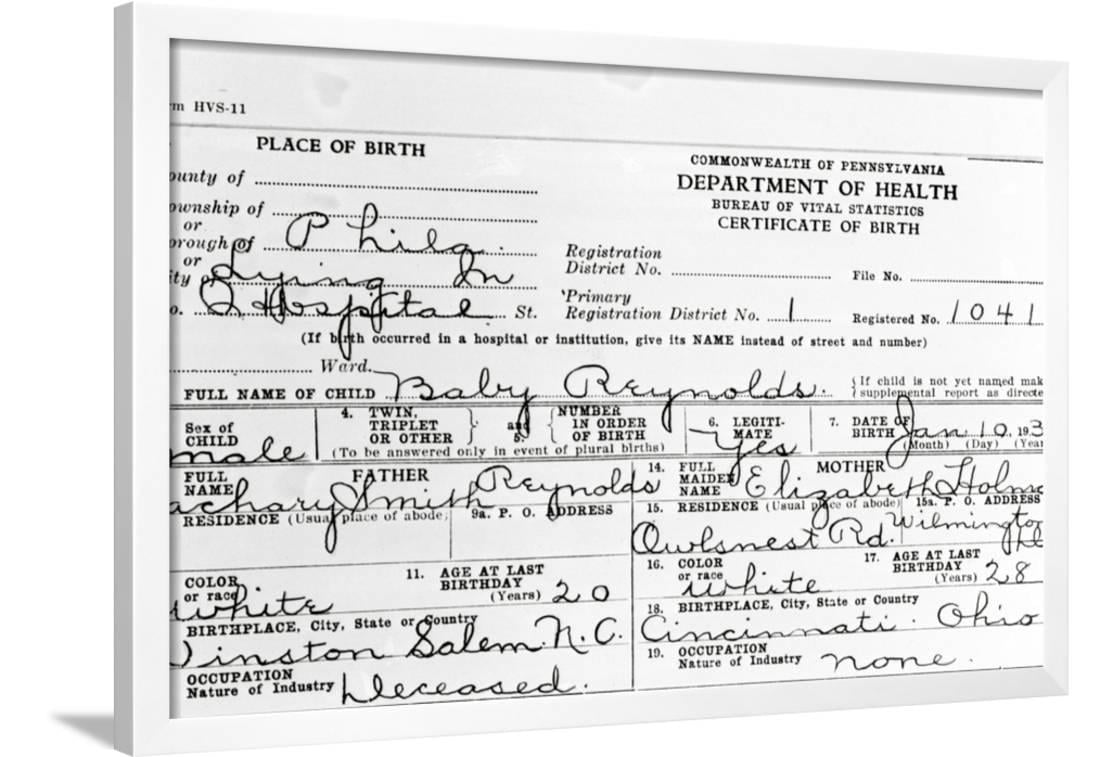 m HVS-11
PLACE OF BIRTH
ounty of
ownship of
or
orough of Phila.
or
ity of Lying In
o. Hospital St.
(If birth occurred in a hospital or institution, give its NAME instead of street and number)
Ward.
COMMONWEALTH OF PENNSYLVANIA
DEPARTMENT OF HEALTH
BUREAU OF VITAL STATISTICS
CERTIFICATE OF BIRTH
Registration
District No.
File No.
Primary
Registration District No. 1
Registered No. 1041
FULL NAME OF CHILD Baby Reynolds.
If child is not yet named mak
supplemental report as directe
Sex of
CHILD
male
4. TWIN,
TRIPLET
OR OTHER
and
5.
NUMBER
IN ORDER
OF BIRTH
(To be answered only in event of plural births)
6. LEGITI-
MATE
Yes
7. DATE OF
BIRTH Jan 10, 193
(Month) (Day) (Year
FULL
NAME
FATHER
achary Smith Reynolds
RESIDENCE (Usual place of abode)
9a. P. O. ADDRESS
COLOR
or race
white
11. AGE AT LAST
BIRTHDAY
(Years) 20
BIRTHPLACE, City, State or Country
Winston Salem. N. C.
OCCUPATION
Nature of Industry Deceased.
14. FULL
MAIDEN
NAME
MOTHER
Elizabeth Holm
15. RESIDENCE (Usual place of abode)
15a. P. O. ADDRESS
Owlsnest Rd. Wilmington
De
16. COLOR
or race
white
17. AGE AT LAST
BIRTHDAY
(Years) 28
18. BIRTHPLACE, City, State or Country
Cincinnati. Ohio
19. OCCUPATION
Nature of Industry none.